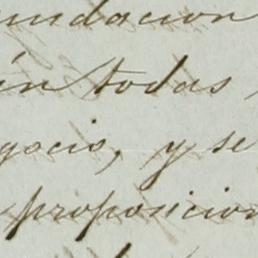 undacion
in todas
gocio, y se
proposicion